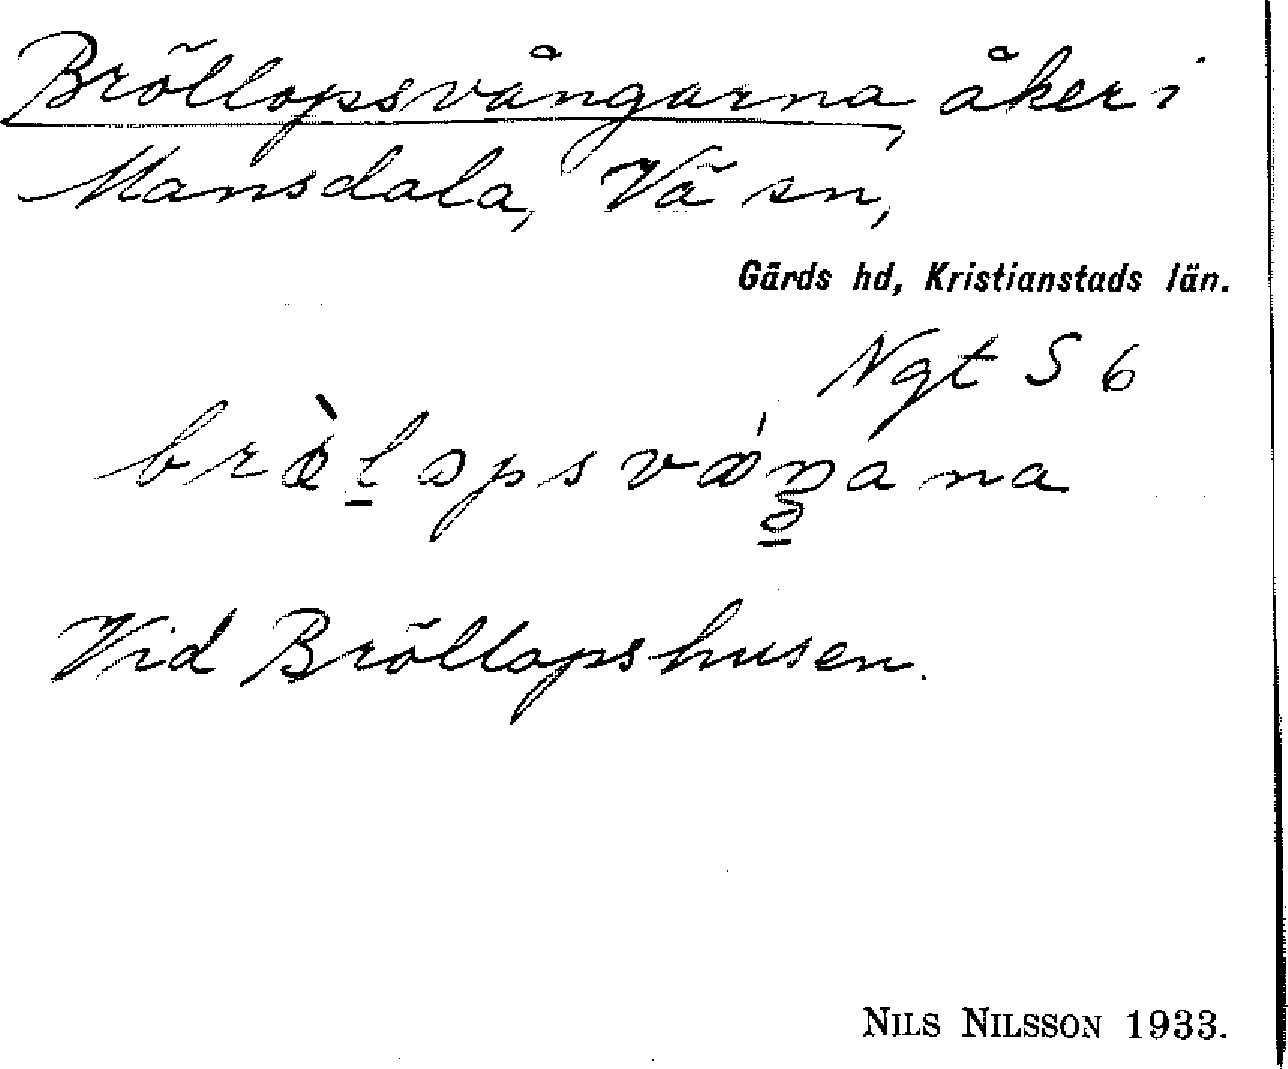 Bröllopsvångarna, åker i
Mansdala, Vä sn,
Gärds hd, Kristianstads län.
Ngt S 6
Vid Bröllopshusen.
NILS NILSSON 1933.